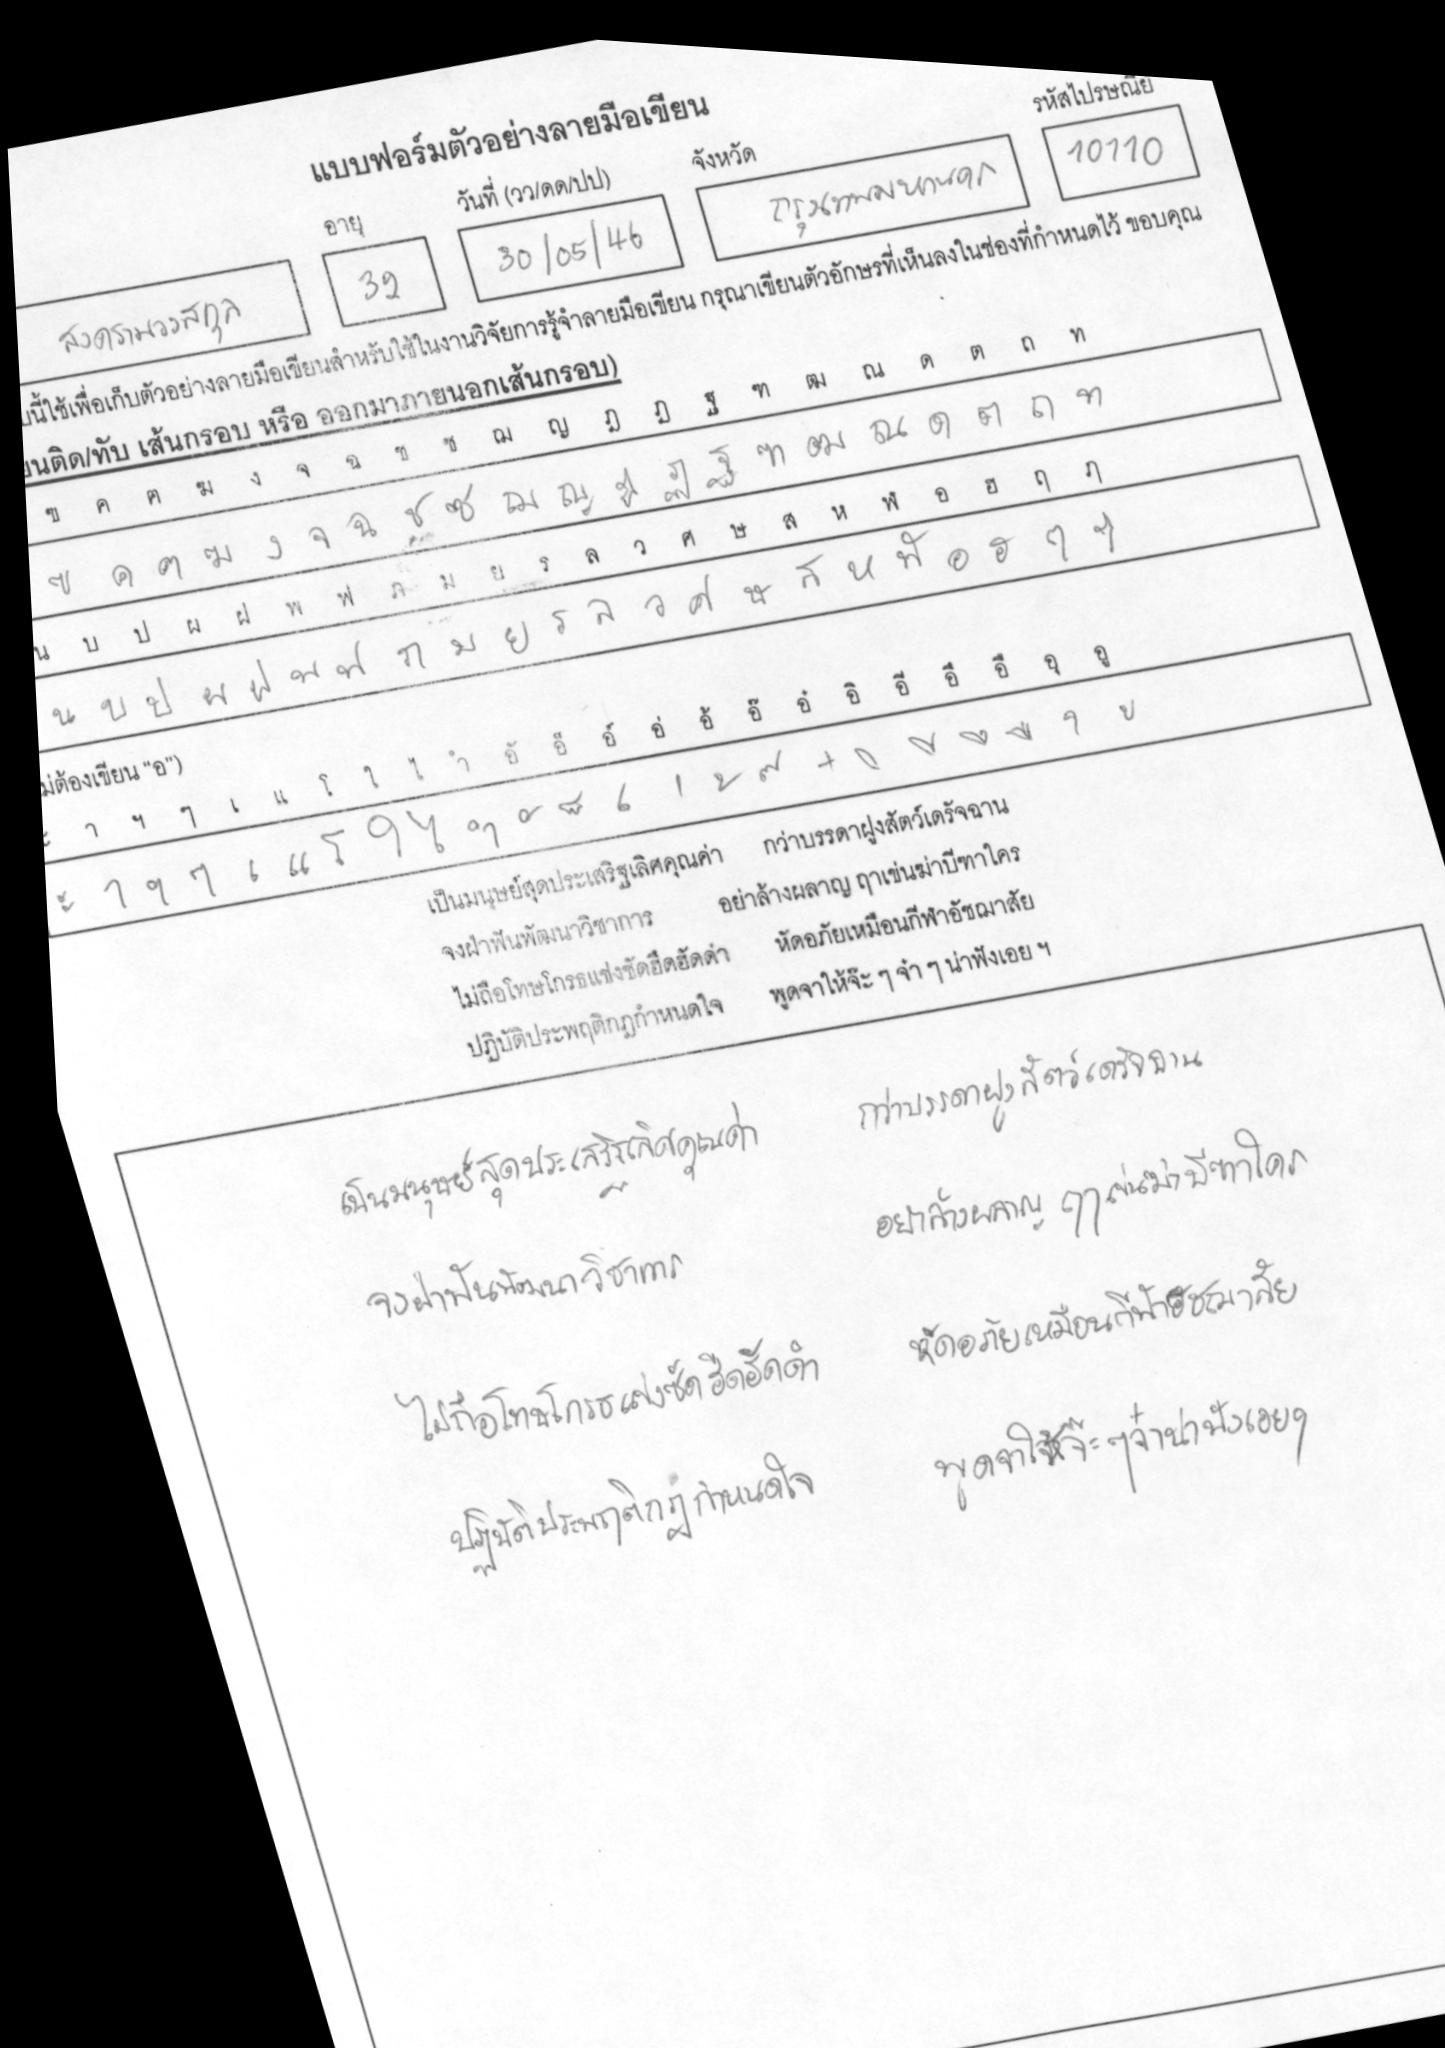 แบบฟอร์มตัวอย่างลายมือเขียน
อายุ วันที่ (วว/ดด/ปป) จังหวัด รหัสไปรษณีย์
สงครามวงสกุล 32 30/05/46 กรุงเทพมหานคร 10110
นี้ใช้เพื่อเก็บตัวอย่างลายมือเขียนสำหรับใช้ในงานวิจัยการรู้จำลายมือเขียน กรุณาเขียนตัวอักษรที่เห็นลงในช่องที่กำหนดไว้ ขอบคุณ
ยนติด/ทับ เส้นกรอบ หรือ ออกมาภายนอกเส้นกรอบ)
ฃ ค ฅ ฆ ง จ ฉ ช ซ ฌ ญ ฎ ฏ ฐ ฑ ฒ ณ ด ต ถ ท
ฃ ค ฅ ฆ ง จ ฉ ช ซ ฌ ญ ฎ ฏ ฐ ฑ ฒ ณ ด ต ถ ท
น บ ป ผ ฝ พ ฟ ภ ม ย ร ล ว ศ ษ ส ห ฬ อ ฮ ฤ ฦ
น บ ป ผ ฝ พ ฟ ภ ม ย ร ล ว ศ ษ ส ห ฬ อ ฮ ฤ ฦ
ม่ต้องเขียน “อ”)
ะ า ฯ ๆ เ แ โ ใ ไ ำ อั อ็ อ์ อ่ อ้ อ๊ อ๋ อิ อี อึ อื อุ อู
ะ า ฯ ๆ เ แ โ ใ ไ ำ ั ็ ์ ่ ้ ๊ ๋ ิ ี ึ ื ุ ู
เป็นมนุษย์สุดประเสริฐเลิศคุณค่า กว่าบรรดาฝูงสัตว์เดรัจฉาน
จงฝ่าฟันพัฒนาวิชาการ อย่าล้างผลาญ ฤาเข่นฆ่าบีฑาใคร
ไม่ถือโทษโกรธแช่งซัดฮึดฮัดด่า หัดอภัยเหมือนกีฬาอัชฌาสัย
ปฏิบัติประพฤติกฎกำหนดใจ พูดจาให้จ๊ะ ๆ จ๋า ๆ น่าฟังเอย ฯ
เป็นมนุษย์สุดประเสริฐเลิศคุณค่า กว่าบรรดาฝูงสัตว์เดรัจฉาน
จงฝ่าฟันพัฒนาวิชาการ อย่าล้างผลาญ ฤาเข่นฆ่าบีฑาใคร
ไม่ถือโทษโกรธแช่งซัดฮึดฮัดด่า หัดอภัยเหมือนกีฬาอัชฌาสัย
ปฏิบัติประพฤติกฎกำหนดใจ พูดจาให้จ๊ะ ๆ จ๋าน่าฟังเอยฯ